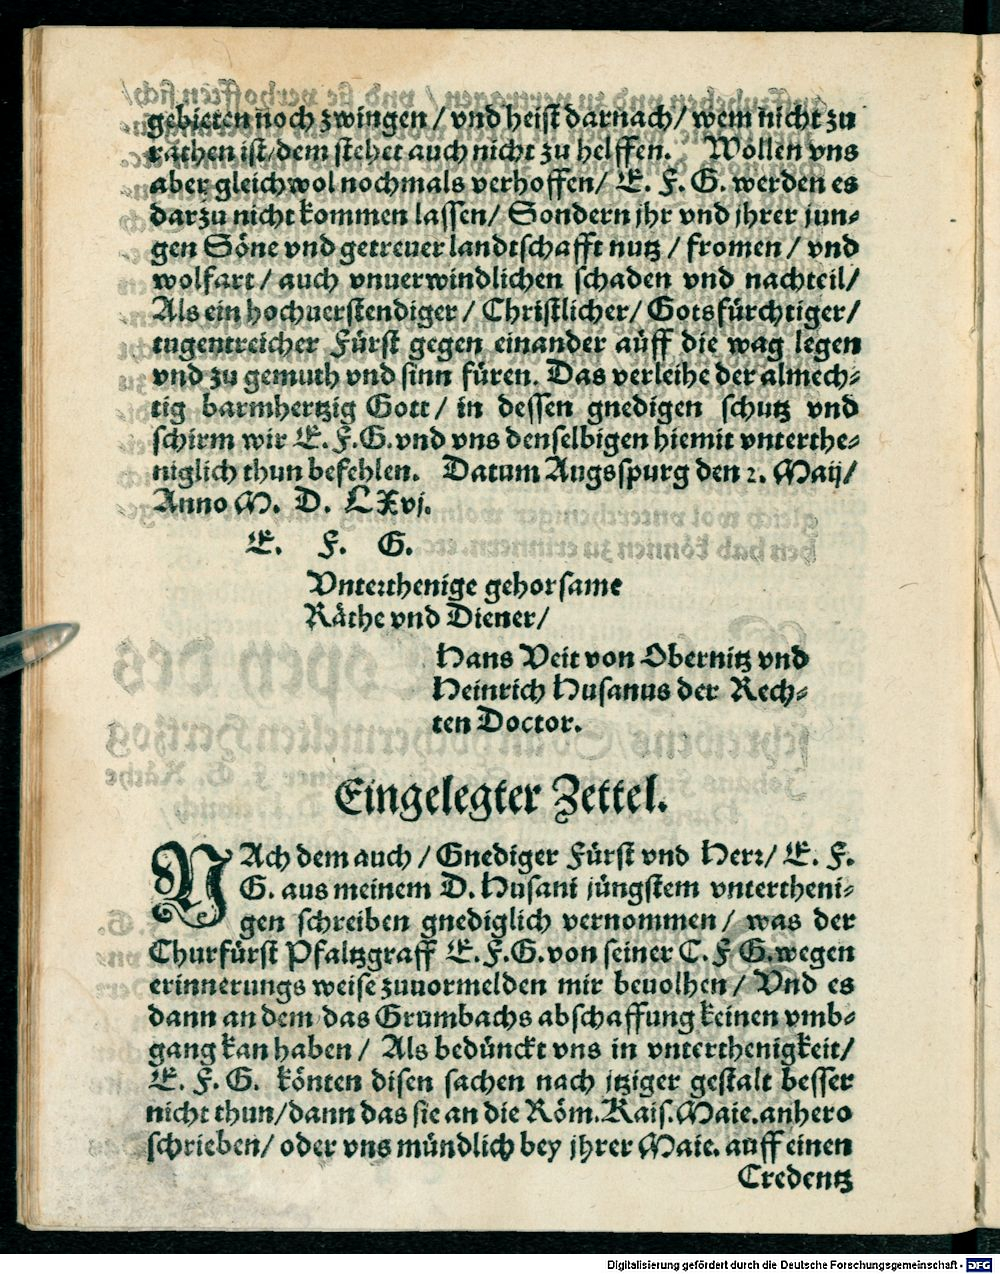 gebieten noch zwingen / vnd heist darnach / wem nicht zu
rathen ist / dem stehet auch nicht zu helffen. Wollen vns
aber gleichwol nochmals verhoffen / E. F. G. werden es
darzu nicht kommen lassen / Sondern jhr vnd jhrer jun-
gen Söne vnd getreuer landtschafft nutz / fromen / vnd
wolfart / auch vnuerwindlichen schaden vnd nachteil /
Als ein hochuerstendiger / Christlicher / Gotsfürchtiger /
tugentreicher Fürst gegen einander auff die wag legen
vnd zu gemuth vnd sinn füren. Das verleihe der almech-
tig barmhertzig Gott / in dessen gnedigen schutz vnd
schirm wir E. F. G. vnd vns denselbigen hiemit vnterthe-
niglich thun befehlen. Datum Augsspurg den 2. Maij /
Anno M. D. LXvj.
E. F. G.
Vnterthenige gehorsame
Räthe vnd Diener /
Hans Veit von Obernitz vnd
Heinrich Husanus der Rech-
ten Doctor.
Eingelegter Zettel.
NAch dem auch / Gnediger Fürst vnd Herr / E. F.
G. aus meinem D. Husani jüngstem vntertheni-
gen schreiben gnediglich vernommen / was der
Churfürst Pfaltzgraff E. F. G. von seiner C. F G. wegen
erinnerungs weise zuuormelden mir beuolhen / Vnd es
dann an dem das Grumbachs abschaffung keinen vmb-
gang kan haben / Als bedünckt vns in vnterthenigkeit /
E. F. G. könten disen sachen nach jtziger gestalt besser
nicht thun / dann das sie an die Röm. Kais. Maie. anhero
schrieben / oder vns mündlich bey jhrer Maie. auff einen
Credentz
Digitalisierung gefördert durch die Deutsche Forschungsgemeinschaft - DFG